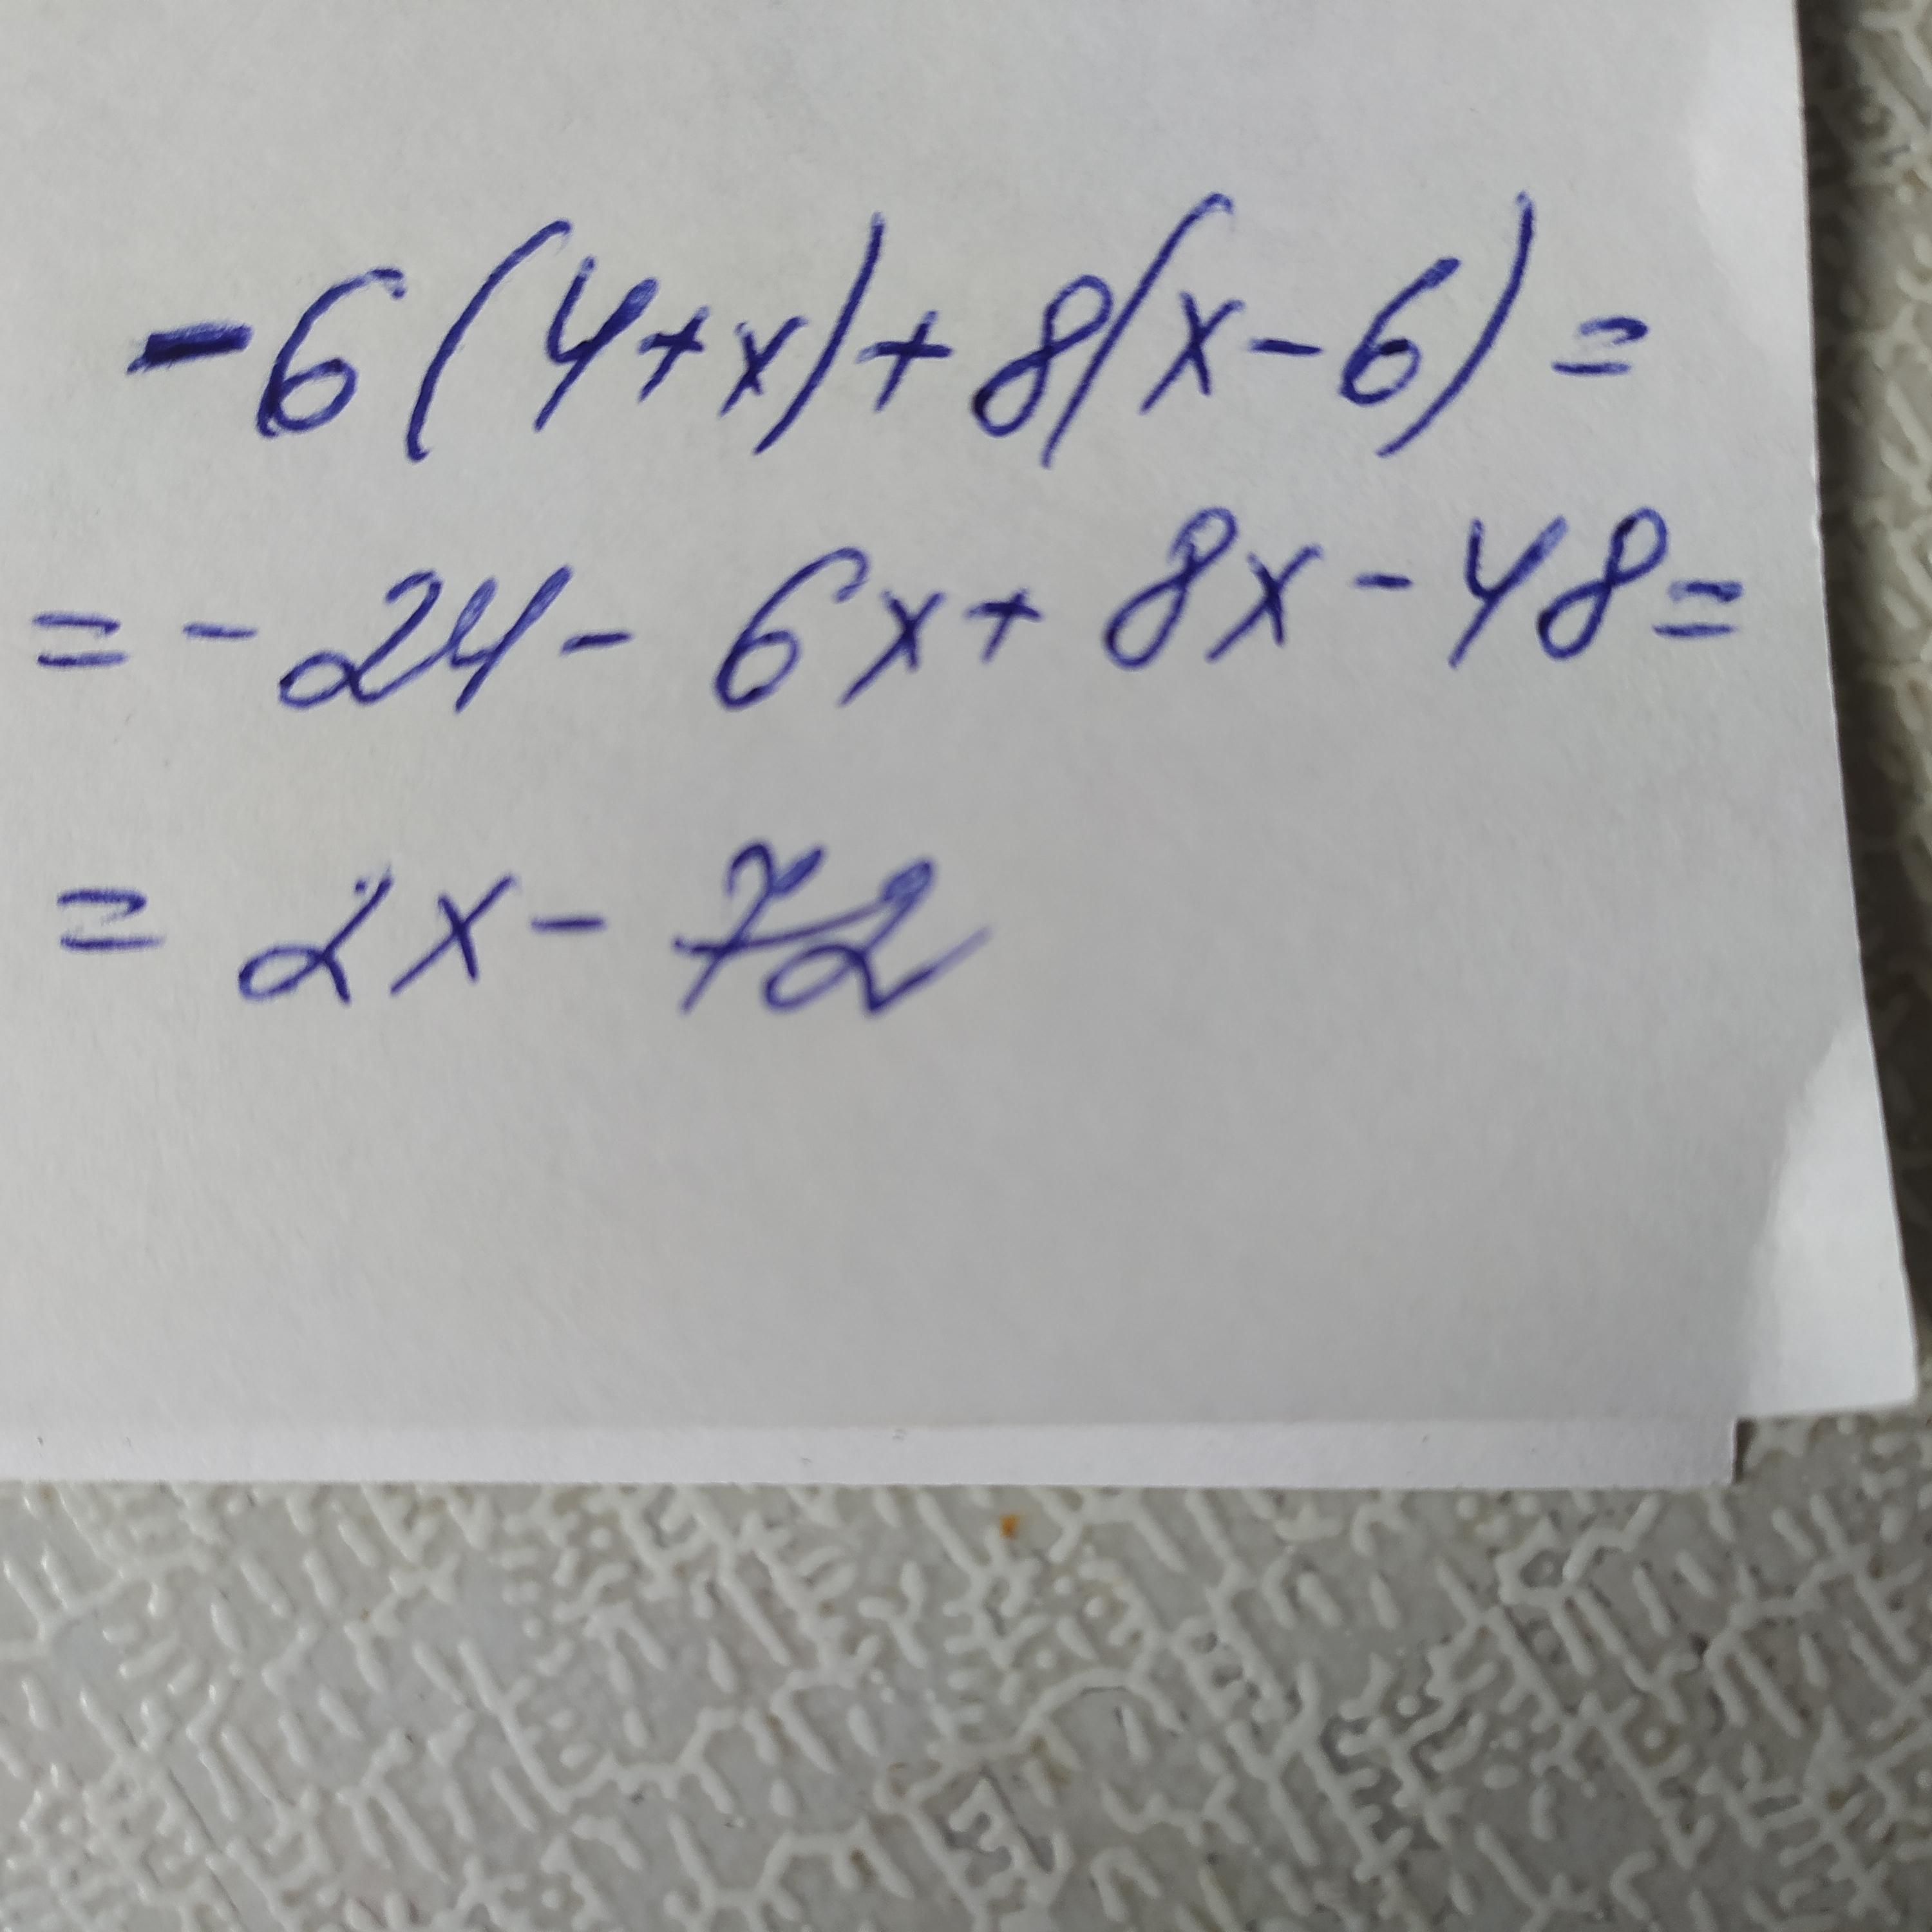 -6(4+x)+8(x-6)=
=-24-6x+8x-48=
=2x-72